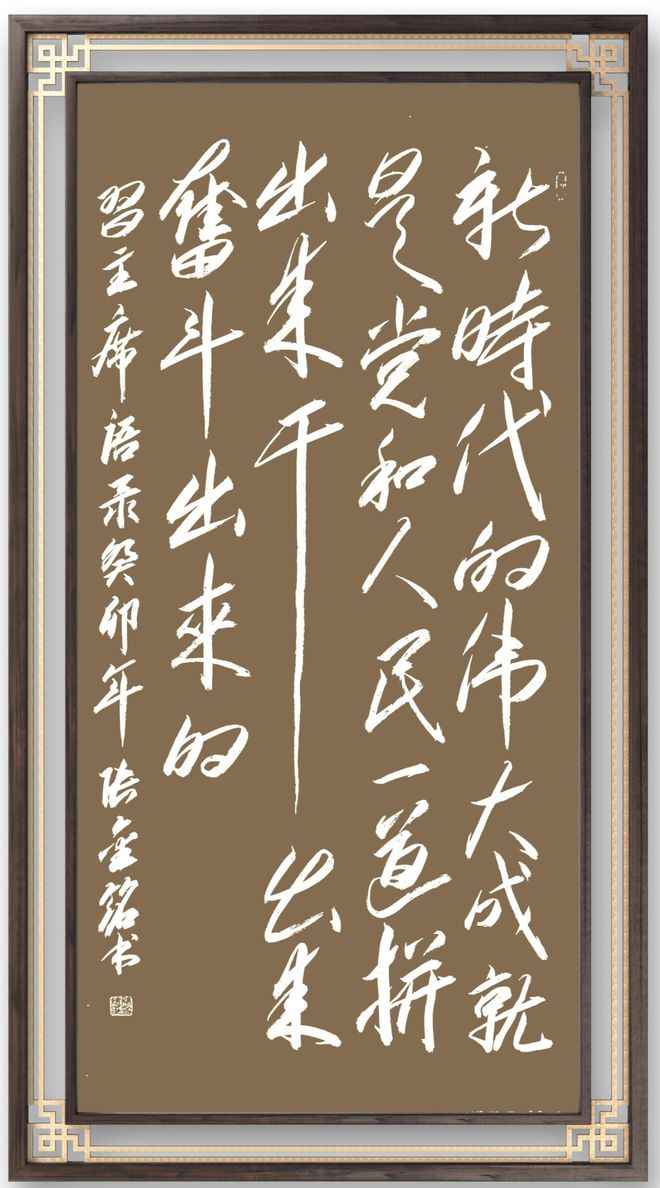 新時代的伟大成就
是党和人民一道拼
出来干出来
奮斗出來的
習主席语录癸卯年张金铭书